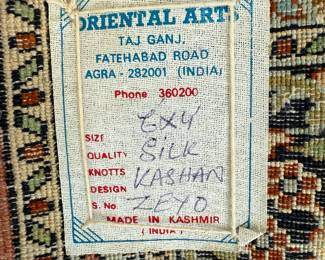 ORIENTAL ARTS
TAJ GANJ,
FATEHABAD ROAD
AGRA - 282001 (INDIA)
Phone 360200
SIZE 6X4
QUALITY SILK
KNOTTS KASHAN
DESIGN
S. No. ZEYO
MADE IN KASHMIR
(INDIA)